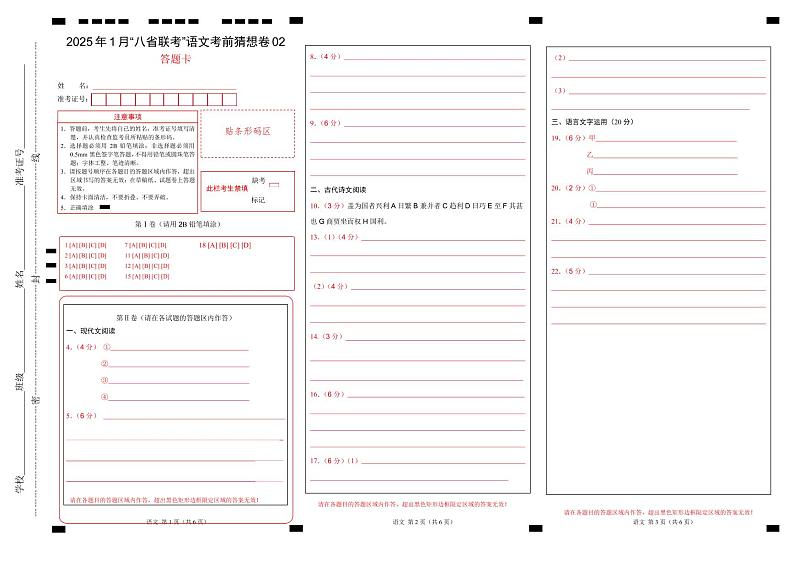 2025年1月“八省联考”语文考前猜想卷02
答题卡
姓 名：
准考证号：
注意事项
1．答题前，考生先将自己的姓名，准考证号填写清
楚，并认真检查监考员所粘贴的条形码。
2．选择题必须用2B铅笔填涂；非选择题必须用
0.5mm黑色签字笔答题，不得用铅笔或圆珠笔答
题；字体工整、笔迹清晰。
3．请按题号顺序在各题目的答题区域内作答，超出
区域书写的答案无效；在草稿纸、试题卷上答题
无效。
4．保持卡面清洁，不要折叠、不要弄破。
5．正确填涂
贴条形码区
此栏考生禁填
缺考
标记
第Ⅰ卷（请用2B铅笔填涂）
1 [A] [B] [C] [D] 7 [A] [B] [C] [D] 18 [A] [B] [C] [D]
2 [A] [B] [C] [D] 11 [A] [B] [C] [D]
3 [A] [B] [C] [D] 12 [A] [B] [C] [D]
6 [A] [B] [C] [D] 15 [A] [B] [C] [D]
第Ⅱ卷（请在各试题的答题区内作答）
一、现代文阅读
4．（4分） ①
②
③
④
5．（6分）
请在各题目的答题区域内作答，超出黑色矩形边框限定区域的答案无效！
语文 第1页（共6页）
学校
班级
姓名
准考证号
密
封
线
8．（4分）
9．（6分）
二、古代诗文阅读
10．（3分）盖为国者兴利A日繁B兼并者C趋利D日巧E至F其甚
也G商贾坐而权H国利。
13．（1）（4分）
（2）（4分）
14．（3分）
16．（6分）
17．（6分）（1）
请在各题目的答题区域内作答，超出黑色矩形边框限定区域的答案无效！
语文 第2页（共6页）
（2）
（3）
三、语言文字运用（20分）
19．（6分）甲
乙
丙
20．（2分）①
①
21．（4分）
22．（5分）
请在各题目的答题区域内作答，超出黑色矩形边框限定区域的答案无效！
语文 第3页（共6页）